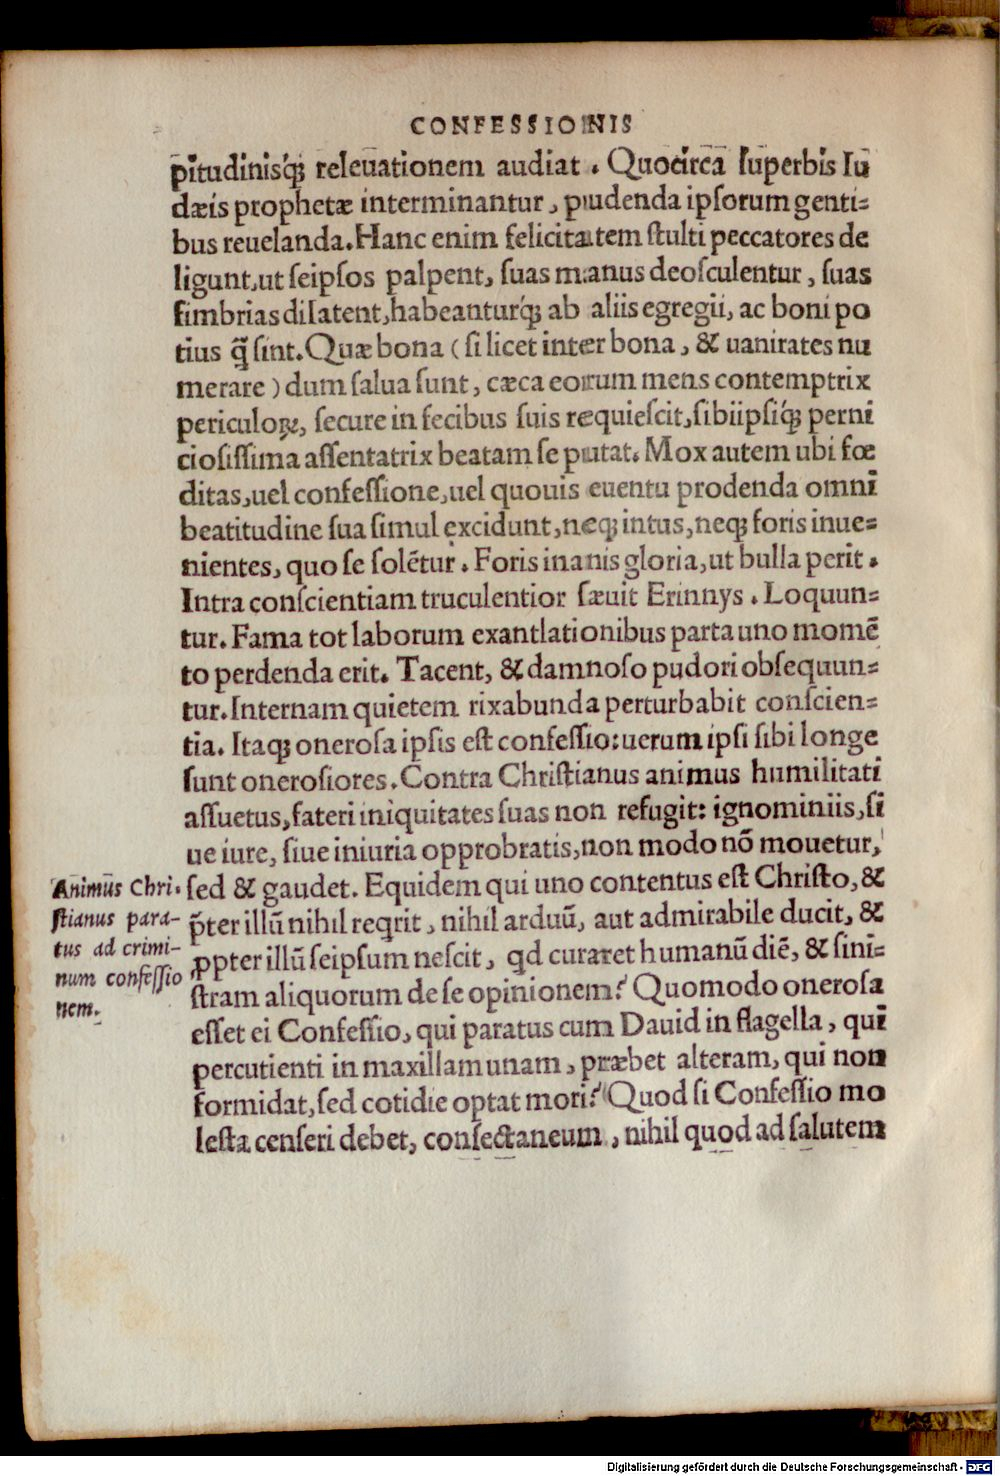 CONFESSIONIS
pitudinisq́ꝫ releuationem audiat. Quocirca ſuperbis Iu
dæis prophetæ interminantur, pudenda ipſorum genti=
bus reuelanda. Hanc enim felicitatem ſtulti peccatores de
ligunt, ut ſeipſos palpent, ſuas manus deoſculentur, ſuas
fimbrias dilatent, habeanturq́ꝫ ab aliis egregii, ac boni po
tius q̃ ſint. Quæ bona (ſi licet inter bona, & uanirates nu
merare) dum ſalua ſunt, cæca eorum mens contemptrix
periculoꝝ, ſecure in fecibus ſuis requieſcit, ſibiipſiq́ꝫ perni
cioſiſſima aſſentatrix beatam ſe putat. Mox autem ubi fœ
ditas, uel confeſſione, uel quouis euentu prodenda omni
beatitudine ſua ſimul excidunt, neqꝫ intus, neqꝫ foris inue=
nientes, quo ſe ſolẽtur. Foris inanis gloria, ut bulla perit.
Intra conſcientiam truculentior ſæuit Erinnys. Loquun=
tur. Fama tot laborum exantlationibus parta uno momẽ
to perdenda erit. Tacent, & damnoſo pudori obſequun=
tur. Internam quietem rixabunda perturbabit conſcien=
tia. Itaqꝫ oneroſa ipſis eſt confeſſio: uerum ipſi ſibi longe
ſunt oneroſiores. Contra Chriſtianus animus humilitati
aſſuetus, fateri iniquitates ſuas non refugit: ignominiis, ſi
ue iure, ſiue iniuria opprobratis, non modo nõ mouetur,
Animus Chri-
ſtianus para-
tus ad crimi-
num confeſſio
nem.
ſed & gaudet. Equidem qui uno contentus eſt Chriſto, &
p̃ter illũ nihil reqrit, nihil arduũ, aut admirabile ducit, &
ꝓpter illũ ſeipſum neſcit, qd curaret humanũ diẽ, & ſini=
ſtram aliquorum de ſe opinionem? Quomodo oneroſa
eſſet ei Confeſſio, qui paratus cum Dauid in flagella, qui
percutienti in maxillam unam, præbet alteram, qui non
formidat, ſed cotidie optat mori? Quod ſi Confeſſio mo
leſta cenſeri debet, conſectaneum, nihil quod ad ſalutem
Digitalisierung gefördert durch die Deutsche Forschungsgemeinschaft - DFG